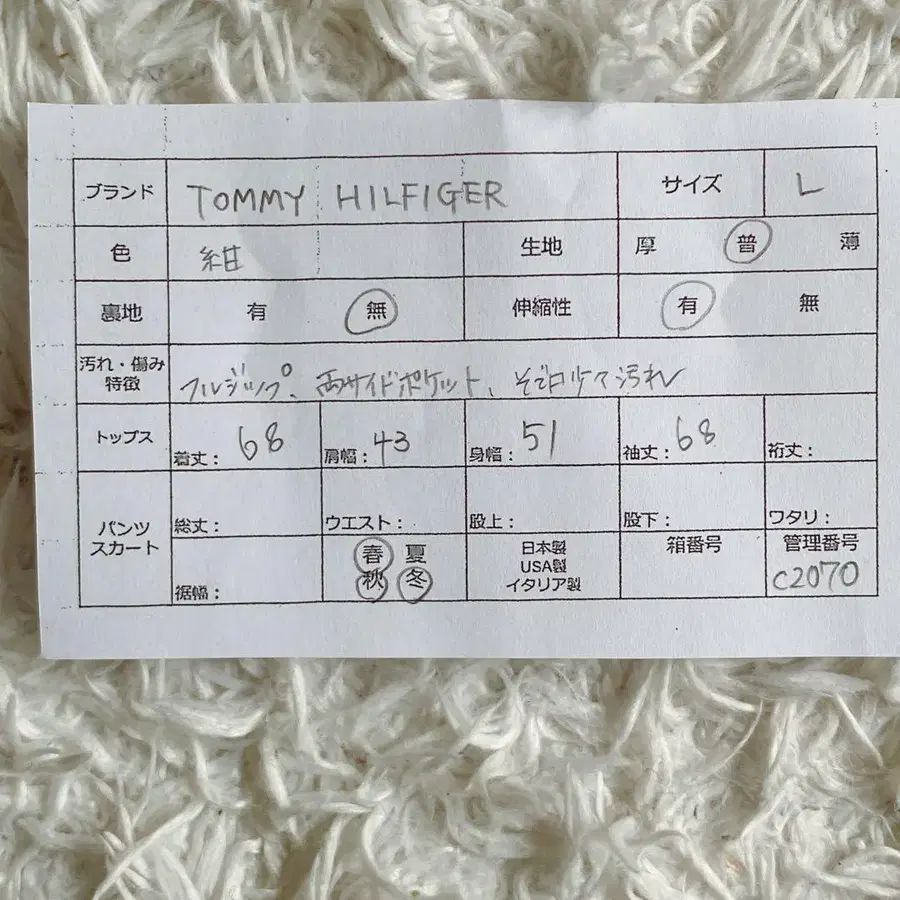 ブランド TOMMY HILFIGER サイズ L
色 紺 生地 厚 普 薄
裏地 有 無 伸縮性 有 無
汚れ・傷み
特徴 フルジップ、両サイドポケット、そで口少々汚れ
トップス 着丈: 68 肩幅: 43 身幅: 51 袖丈: 68 裄丈:
パンツ
スカート
総丈: ウエスト: 股上: 股下: ワタリ:
裾幅:
春 夏
秋 冬
日本製
USA製
イタリア製
箱番号
管理番号
C2070